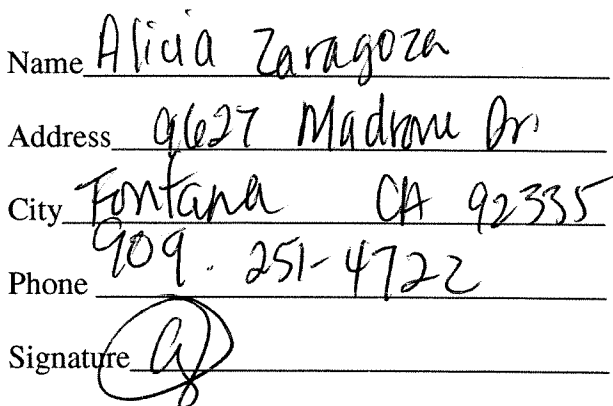 Name Alicia Zaragoza
Address 9627 Madrone Dr.
City Fontana CA 92335
Phone 909. 251-4722
Signature